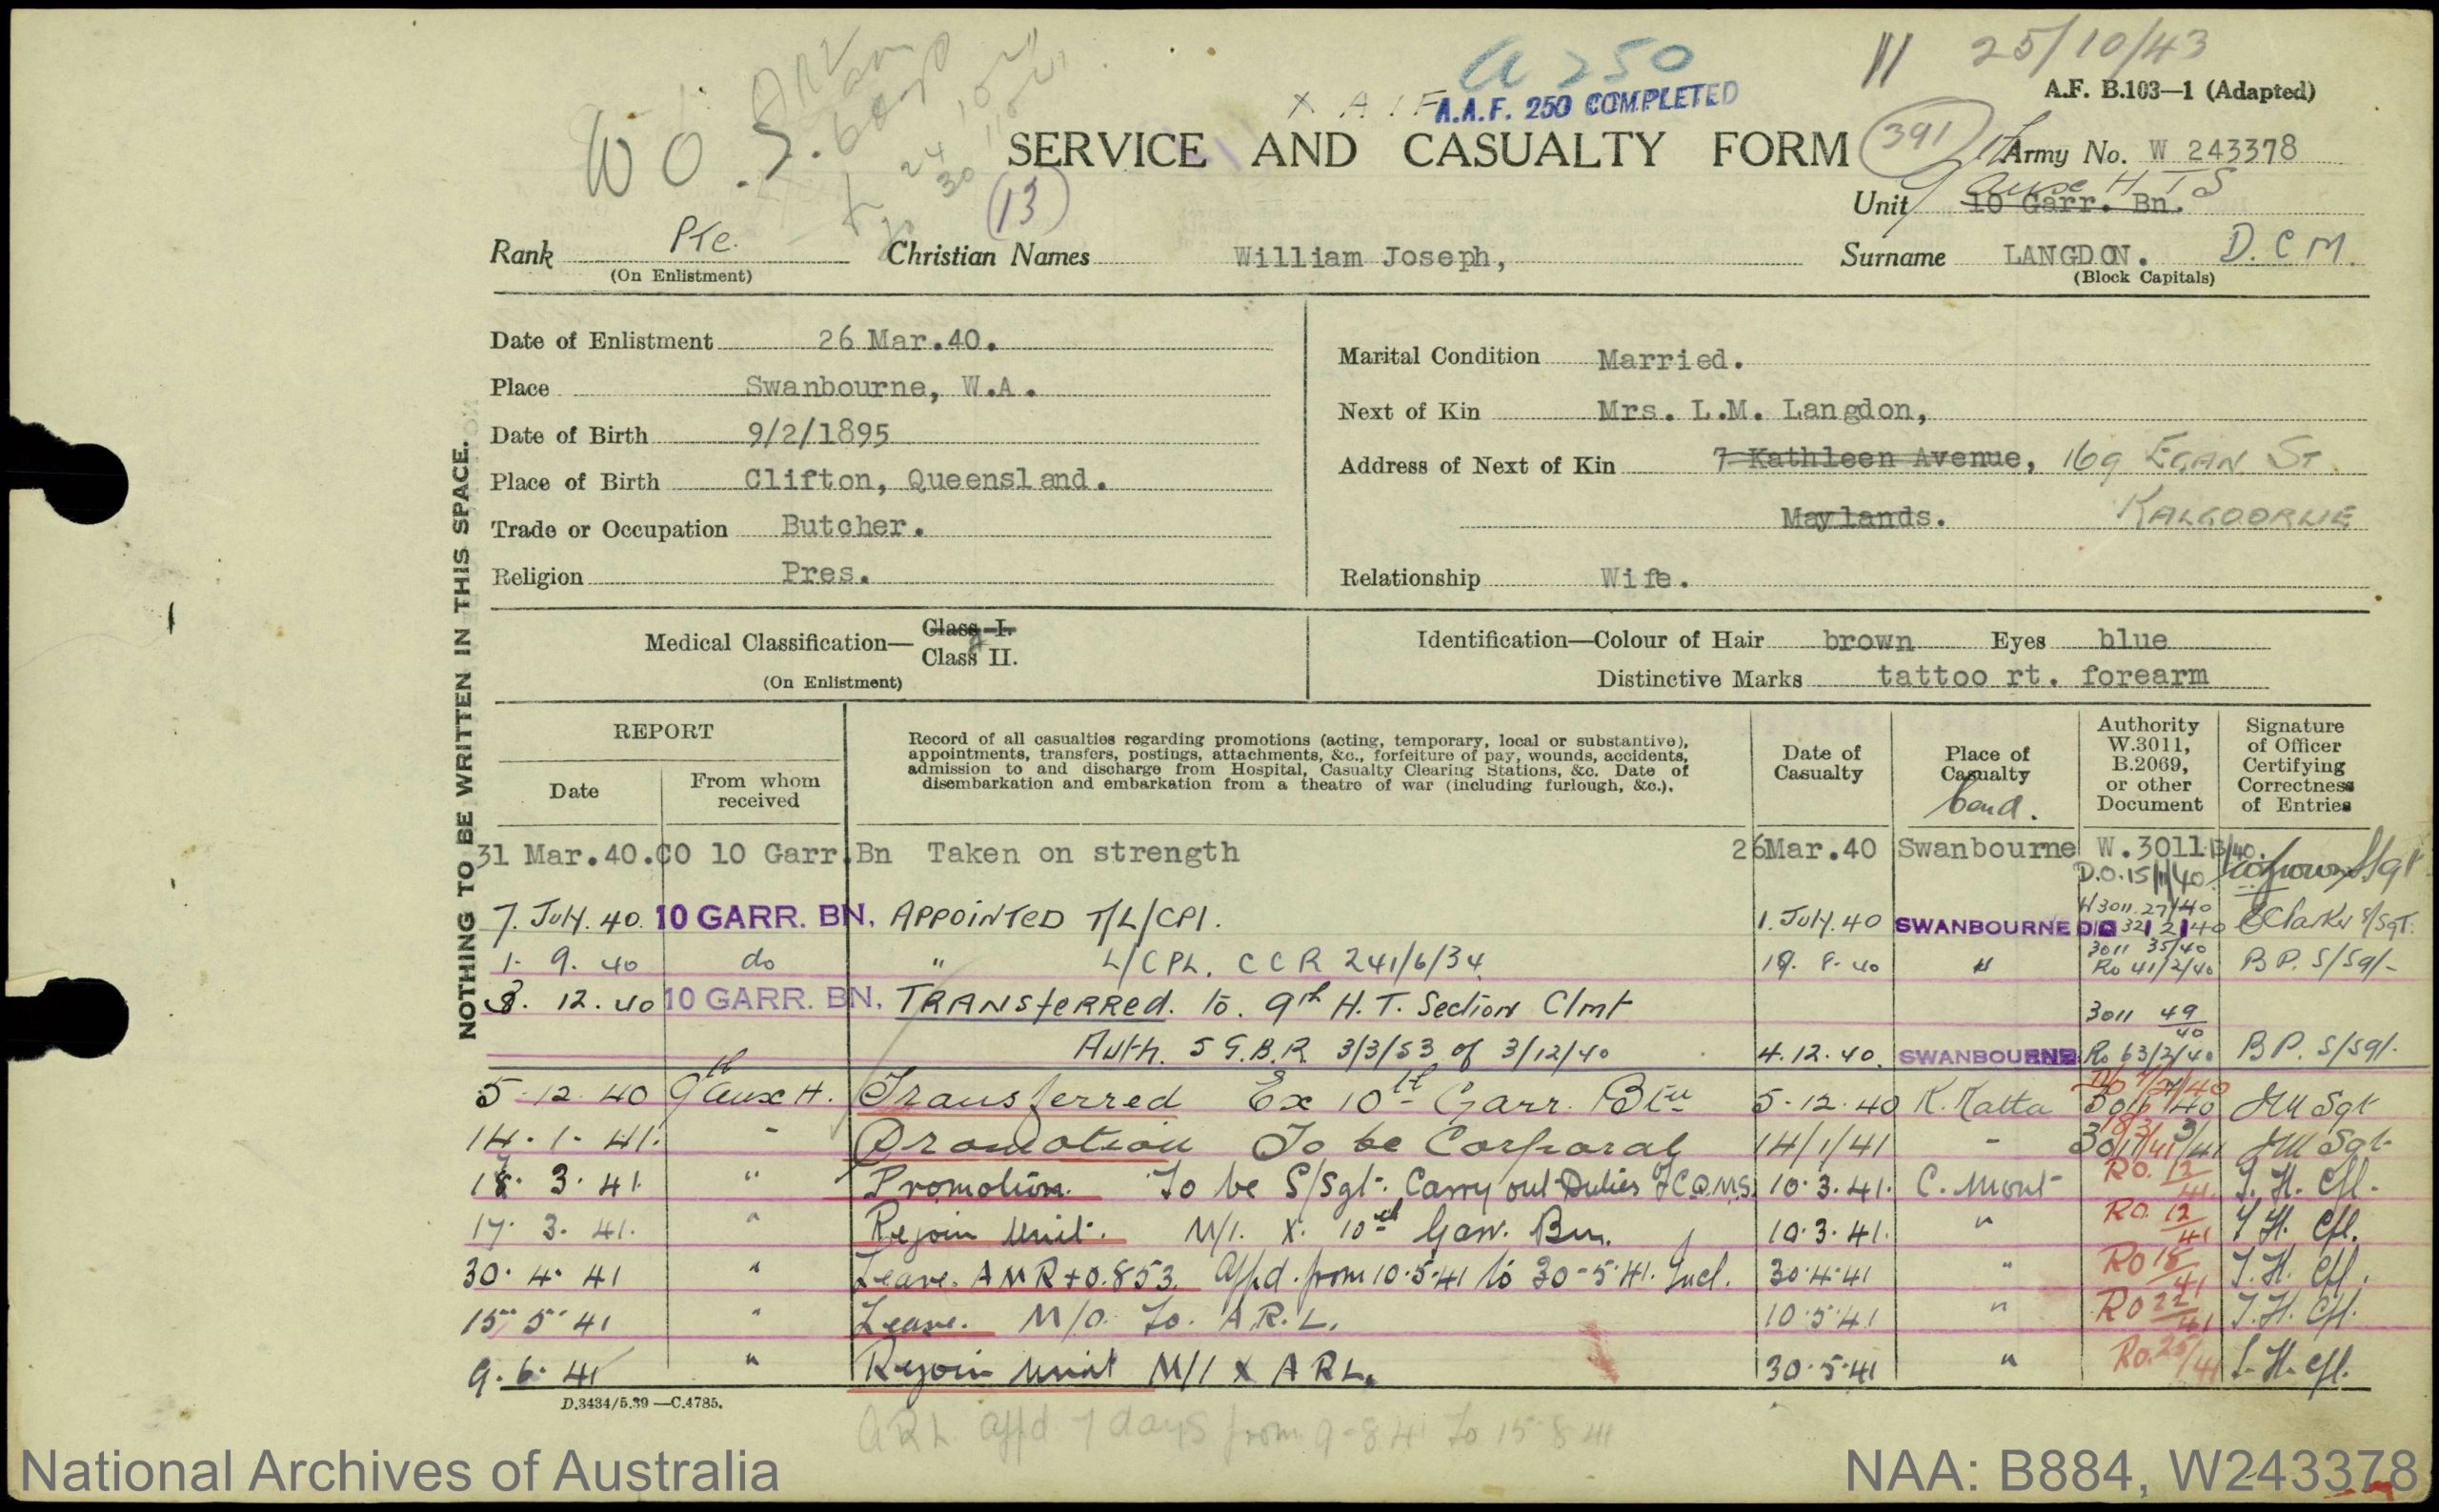 25/10/43
a 250
A.F. B.103—1 (Adapted)
X A I F A.A.F. 250 COMPLETED
W O
SERVICE AND CASUALTY FORM 391 Army No. W 243378
24
30
(13)
Aux H T S
Unit 10 Garr. Bn.
Rank Pte. Christian Names William Joseph, Surname LANGDON. D.C.M.
(On Enlistment) (Block Capitals)
Date of Enlistment 26 Mar.40.
Place Swanbourne, W.A.
Date of Birth 9/2/1895
Place of Birth Clifton, Queensland.
Trade or Occupation Butcher.
Religion Pres.
Marital Condition Married.
Next of Kin Mrs. L.M. Langdon,
Address of Next of Kin 7 Kathleen Avenue, 169 EGAN ST
Maylands. KALGOORLIE
Relationship Wife.
NOTHING TO BE WRITTEN IN THIS SPACE.
Medical Classification— Class I.
Class II.
(On Enlistment)
Identification—Colour of Hair brown Eyes blue
Distinctive Marks tattoo rt. forearm
REPORT
Date
From whom received
Record of all casualties regarding promotions (acting, temporary, local or substantive),
appointments, transfers, postings, attachments, &c., forfeiture of pay, wounds, accidents,
admission to and discharge from Hospital, Casualty Clearing Stations, &c. Date of
disembarkation and embarkation from a theatre of war (including furlough, &c.).
Date of Casualty
Place of Casualty
Authority W.3011, B.2069, or other Document
Signature of Officer Certifying Correctness of Entries
31 Mar.40. CO 10 Garr.Bn Taken on strength 26 Mar.40 Swanbourne W.3011 13/40.
D.O.15/11/40
7. July. 40. 10 GARR. BN. APPOINTED T/L/CPl. 1. July. 40 SWANBOURNE W3011 27/40 E Clarke S/Sgt.
1. 9. 40 do " L/CPL. CCR 241/6/34 19. 8. 40 " 3011 35/40 Ro 41/2/40 BP. S/Sgt
3. 12. 40 10 GARR. BN. TRANSfeRRed. to. 9th H.T. Section Clmt 3011 49/40
Auth. 5 G.B.R. 3/3/53 of 3/12/40 4.12.40. SWANBOURNE Ro 63/2/40 BP. S/Sgt.
5.12.40 9th Aux H. Transferred Ex 10th Garr. Btn 5.12.40 K. Katta Sgt
14.1.41. " Promotion To be Corporal 14/1/41 " Sgt
18.3.41. " Promotion. To be S/Sgt. Carry out Duties of C.Q.M.S. 10.3.41. C. Mont RO. 12/41 T. H. Cpl.
17.3.41. " Rejoin Unit. M/I. X. 10th Garr. Bn. 10.3.41. " RO. 12/41 T. H. Cpl.
30.4.41 " Leave. AMR+O.853. Appd. from 10.5.41 to 30-5-41. Incl. 30.4.41 " RO 18/41 T. H. Cpl.
15.5.41 " Leave. M/O. To. A.R.L. 10.5.41 " RO 22/41 T. H. Cpl.
9.6.41 " Rejoin Unit M/I X A R L. 30.5.41 " Ro. 25/41 T. H. Cpl.
D.3434/5.39—C.4785.
A R L appd 7 days from 9-8-41 to 15-8-41
National Archives of Australia NAA: B884, W243378